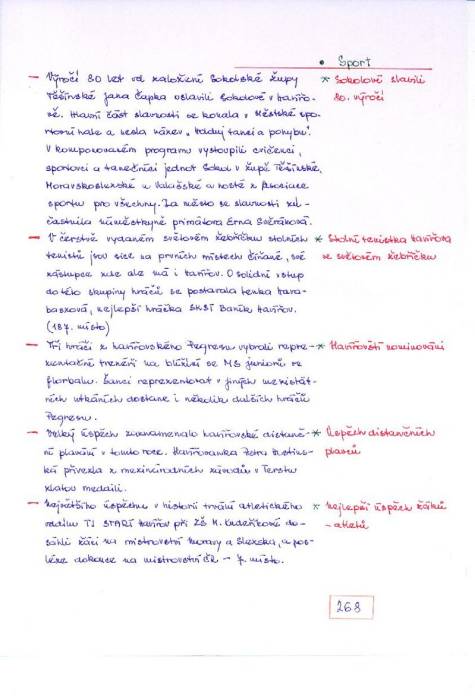 • Sport
— Výročí 80 let od založení Sokolské župy * Sokolové slavili
Těšínské Jana Čapka oslavili Sokolové v Havířo- 80. výročí
vě. Hlavní část slavnosti se konala v Městské spor-
tovní hale a nesla název „Hodují tanci a pohybu".
V komponovaném programu vystoupili cvičenci,
sportovci a tanečníci jednot Sokol v župě Těšínské,
Moravskoslezské a Valašské a hosté z Asociace
sportu pro všechny. Za město se slavnosti zúč-
častnila náměstkyně primátora Erna
— V čerstvě vydaném světovém žebříčku stolních * Stolní tenistka Havířova
tenistů jsou sice na prvních místech Číňané, své ve světovém žebříčku
zástupce zde ale má i Havířov. O solidní vstup
do této skupiny hráčů se postarala Lenka Hara-
basková, nejlepší hráčka SKST Baník Havířov.
(187. místo)
— Tři hráči z havířovského Pegresu vybrali repre- * Havířovští nominováni
zentační trenéři na blížící se MS juniorů ve
florbalu. Šanci reprezentovat v jiných mezistát-
ních utkáních dostane i několik dalších hráčů
Pegresu.
— Velký úspěch zaznamenalo havířovské distanč- * Úspěch distančních
ní plavání v tomto roce. Havířovanka Petra plavců
přivezla z mezinárodních závodů v Terstu
zlatou medaili.
— Největšího úspěchu v historii trvání atletického * Nejlepší úspěch žáků
oddílu TJ START Havířov při ZŠ M. Kudeříkové do- - atletů
sáhli žáci na mistrovství Moravy a Slezska, a pos-
léze dokonce na mistrovství ČR - 7. místo.
268